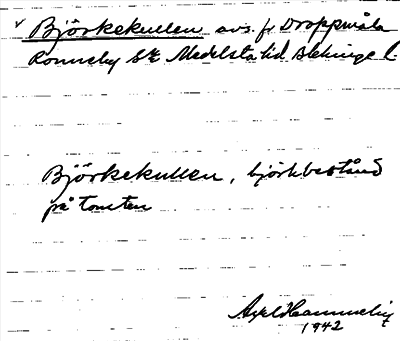 v Björkekullen avs. fr Droppmåla
Ronneby Sn Medelsta hd Blekinge l.
Björkekullen, björkbestånd
på tomten
Axel Hammelin
1942